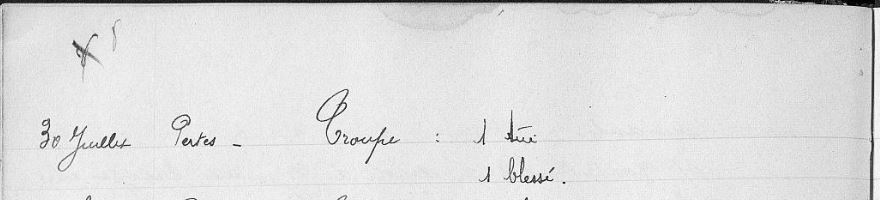 30 Juillet Pertes - Troupe : 1 tué
1 blessé.